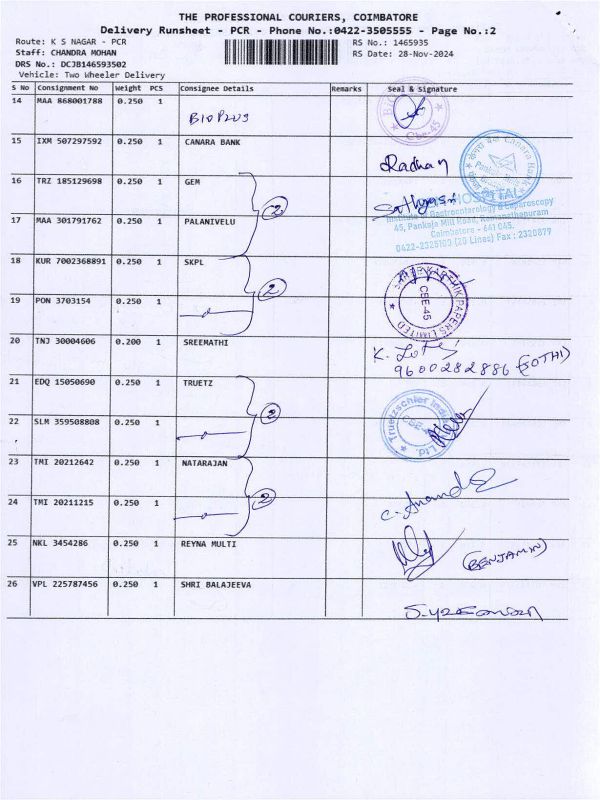 THE PROFESSIONAL COURIERS, COIMBATORE
Delivery Runsheet - PCR - Phone No.:0422-3505555 - Page No.:2
Route: K S NAGAR - PCR RS No.: 1465935
Staff: CHANDRA MOHAN RS Date: 28-Nov-2024
DRS No.: DCJB146593502
Vehicle: Two Wheeler Delivery
S No Consignment No Weight PCS Consignee Details Remarks Seal & Signature
14 MAA 868001788 0.250 1 BIOPLUS
CBE-45
15 IXM 507297592 0.250 1 CANARA BANK
Radhan
Canara Bank
16 TRZ 185129698 0.250 1 GEM
2
Sathyasri
HOSPITAL
Institute of Gastroenterology & Endoscopy
17 MAA 301791762 0.250 1 PALANIVELU
45, Pankaja Mill Road, Ramanathapuram
Coimbatore - 641 045.
0422-2325100 (20 Lines) Fax : 2320879
18 KUR 7002368891 0.250 1 SKPL
2
PAPERS LIMITED
CBE-45
19 PON 3703154 0.250 1
20 TNJ 30004606 0.200 1 SREEMATHI
9600282886 (JOTHI)
21 EDQ 15050690 0.250 1 TRUETZ
2
Truetzschler India Ltd.
22 SLM 359508808 0.250 1
23 TMI 20212642 0.250 1 NATARAJAN
2
C. Anand
24 TMI 20211215 0.250 1
25 NKL 3454286 0.250 1 REYNA MULTI
(BENJAMIN)
26 VPL 225787456 0.250 1 SHRI BALAJEEVA